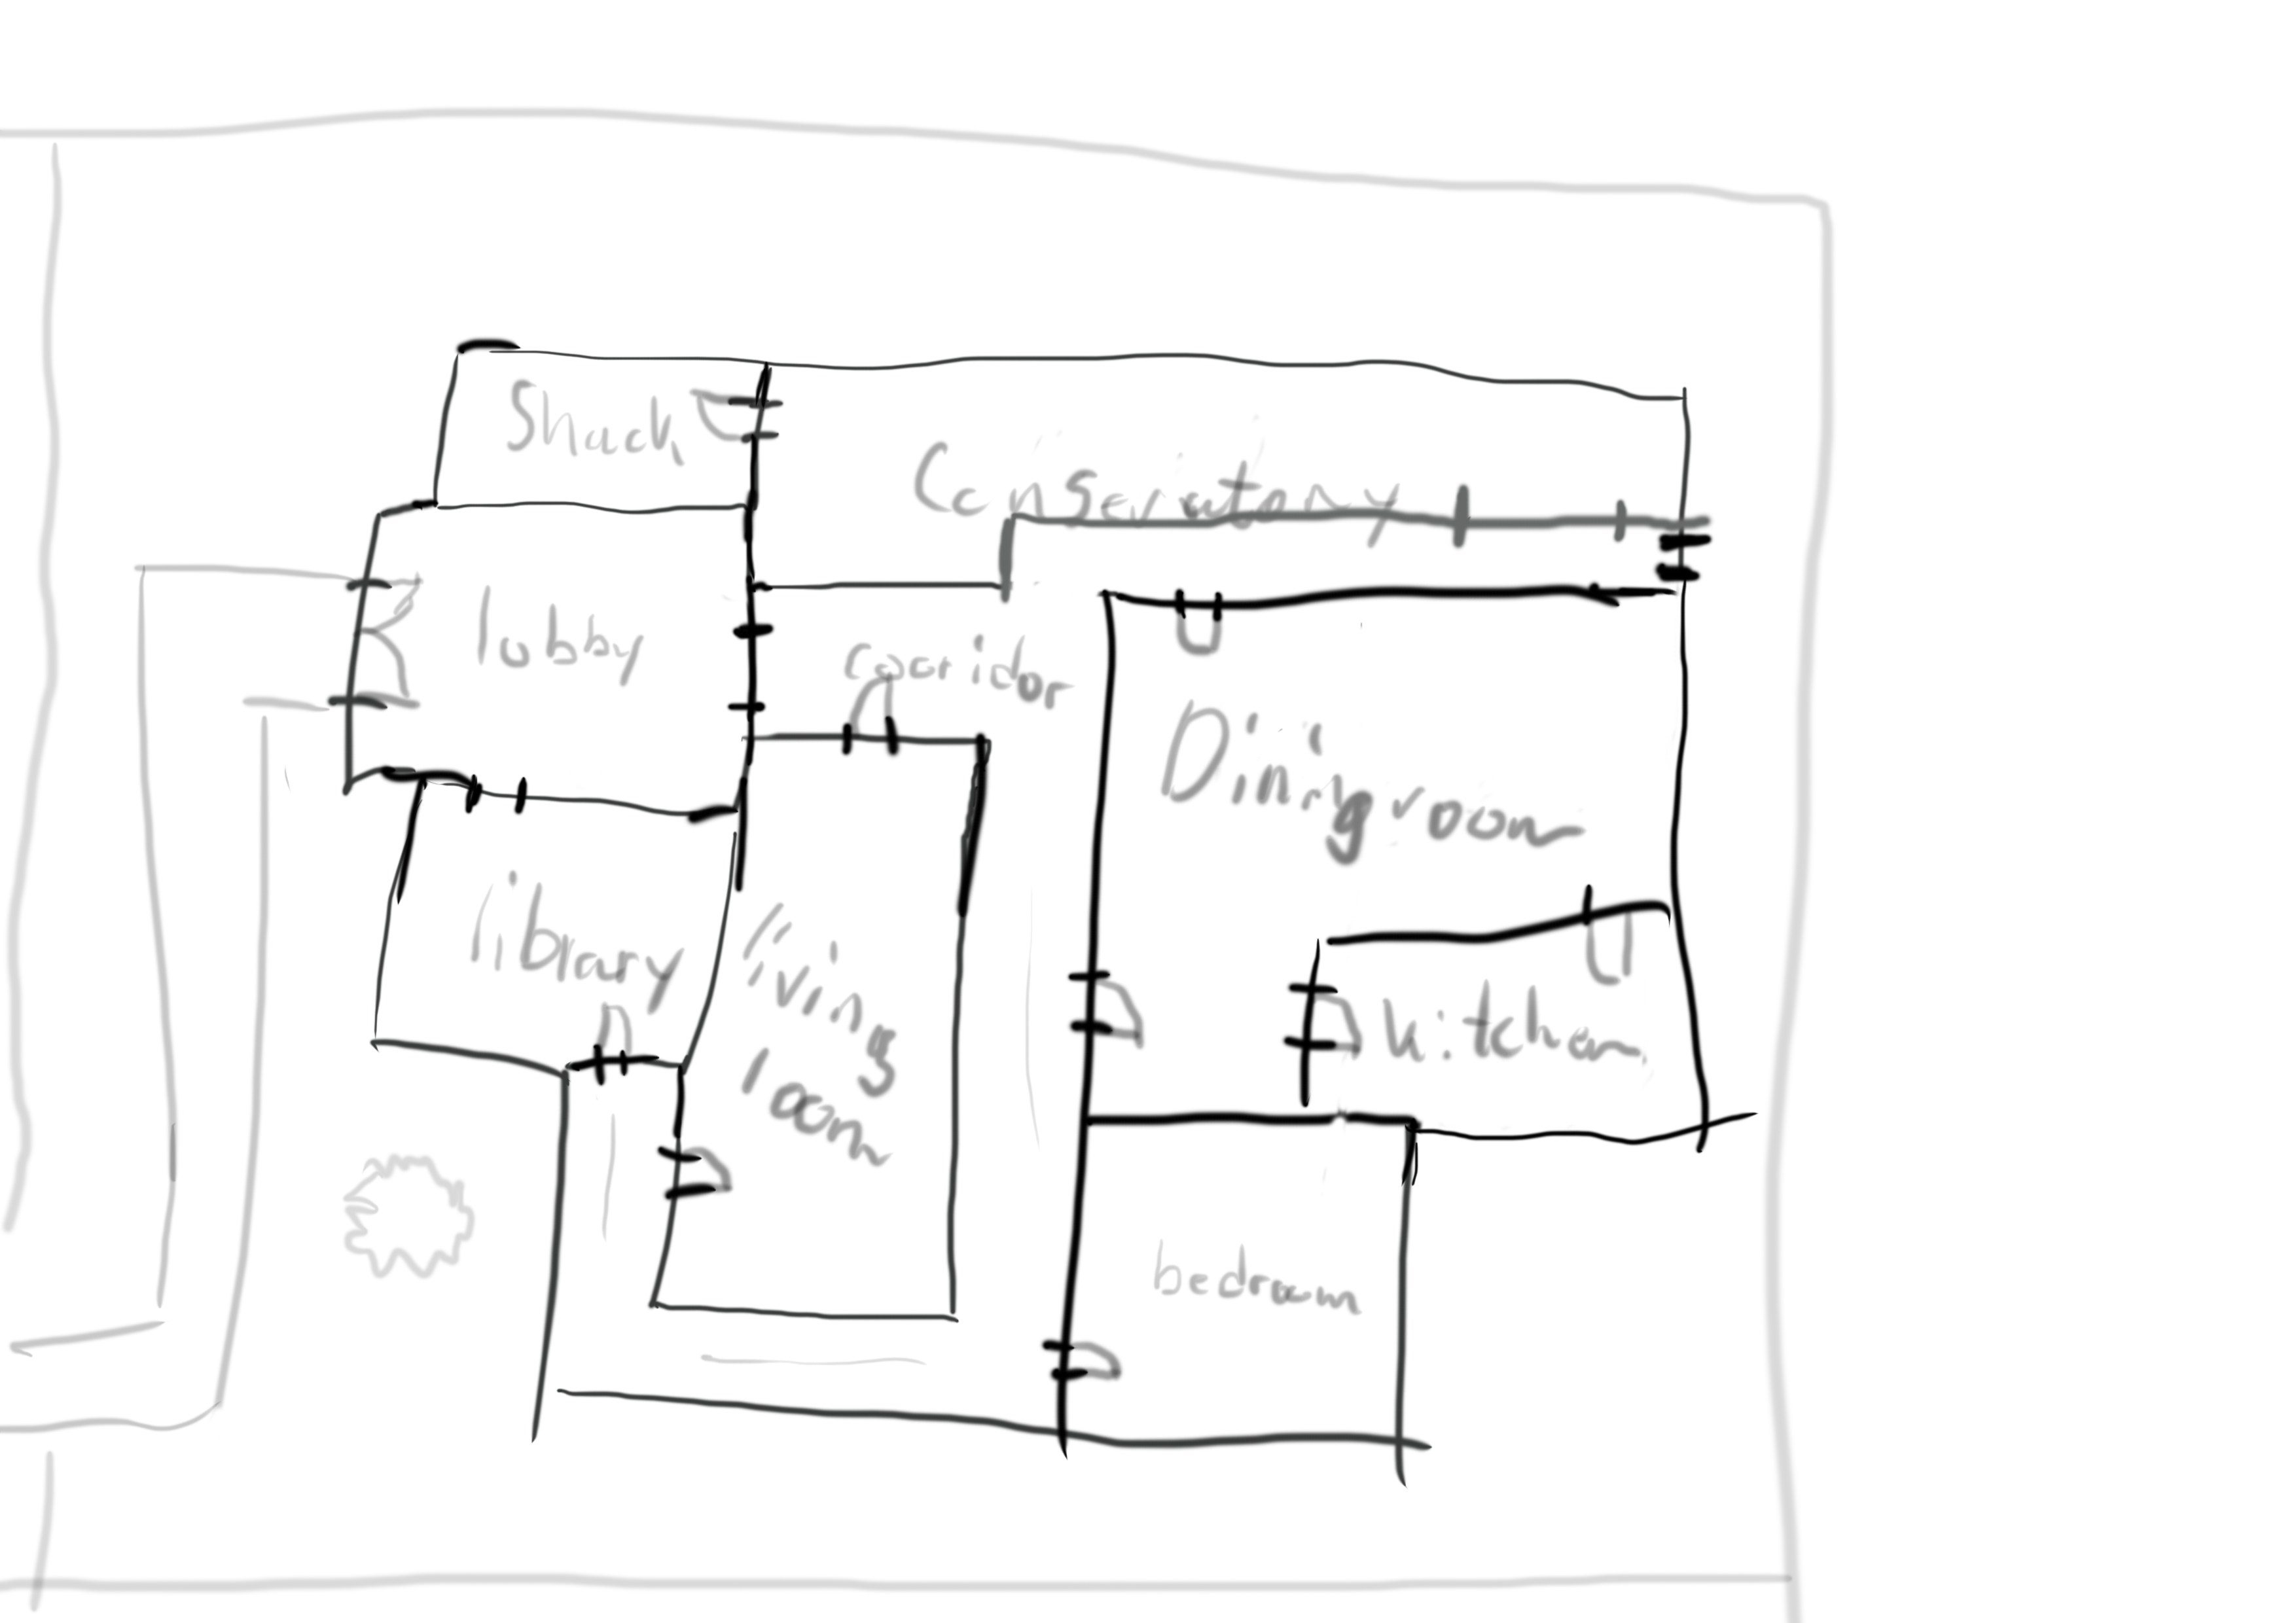 Shack
Conservatory
lobby
Cooridor
Dining room
library
living
room
kitchen
bedroom